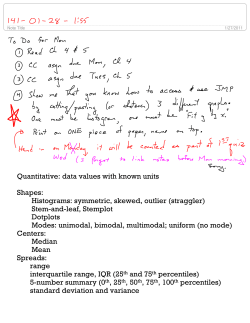 141-01-28-1:55
Note Title
1/27/2011
To Do for Mon
① Read Ch 4 & 5
② CC asgn due Mon, Ch 4
③ CC asgn due Tues, Ch 5
④ Show me that you know how to access & use JMP
by cutting/pasting (or whatever) 3 different graphs.
One must be histogram, one must be Fit Y by X.
Print on ONE piece of paper, name on top.
Hand in on Monday it will be counted as part of 1st quiz
Wed (I forgot to link notes before Mon morning)
Quantitative: data values with known units
Shapes:
Histograms: symmetric, skewed, outlier (straggler)
Stem-and-leaf, Stemplot
Dotplots
Modes: unimodal, bimodal, multimodal; uniform (no mode)
Centers:
Median
Mean
Spreads:
range
interquartile range, IQR (25th and 75th percentiles)
5-number summary (0th, 25th, 50th, 75th, 100th percentiles)
standard deviation and variance